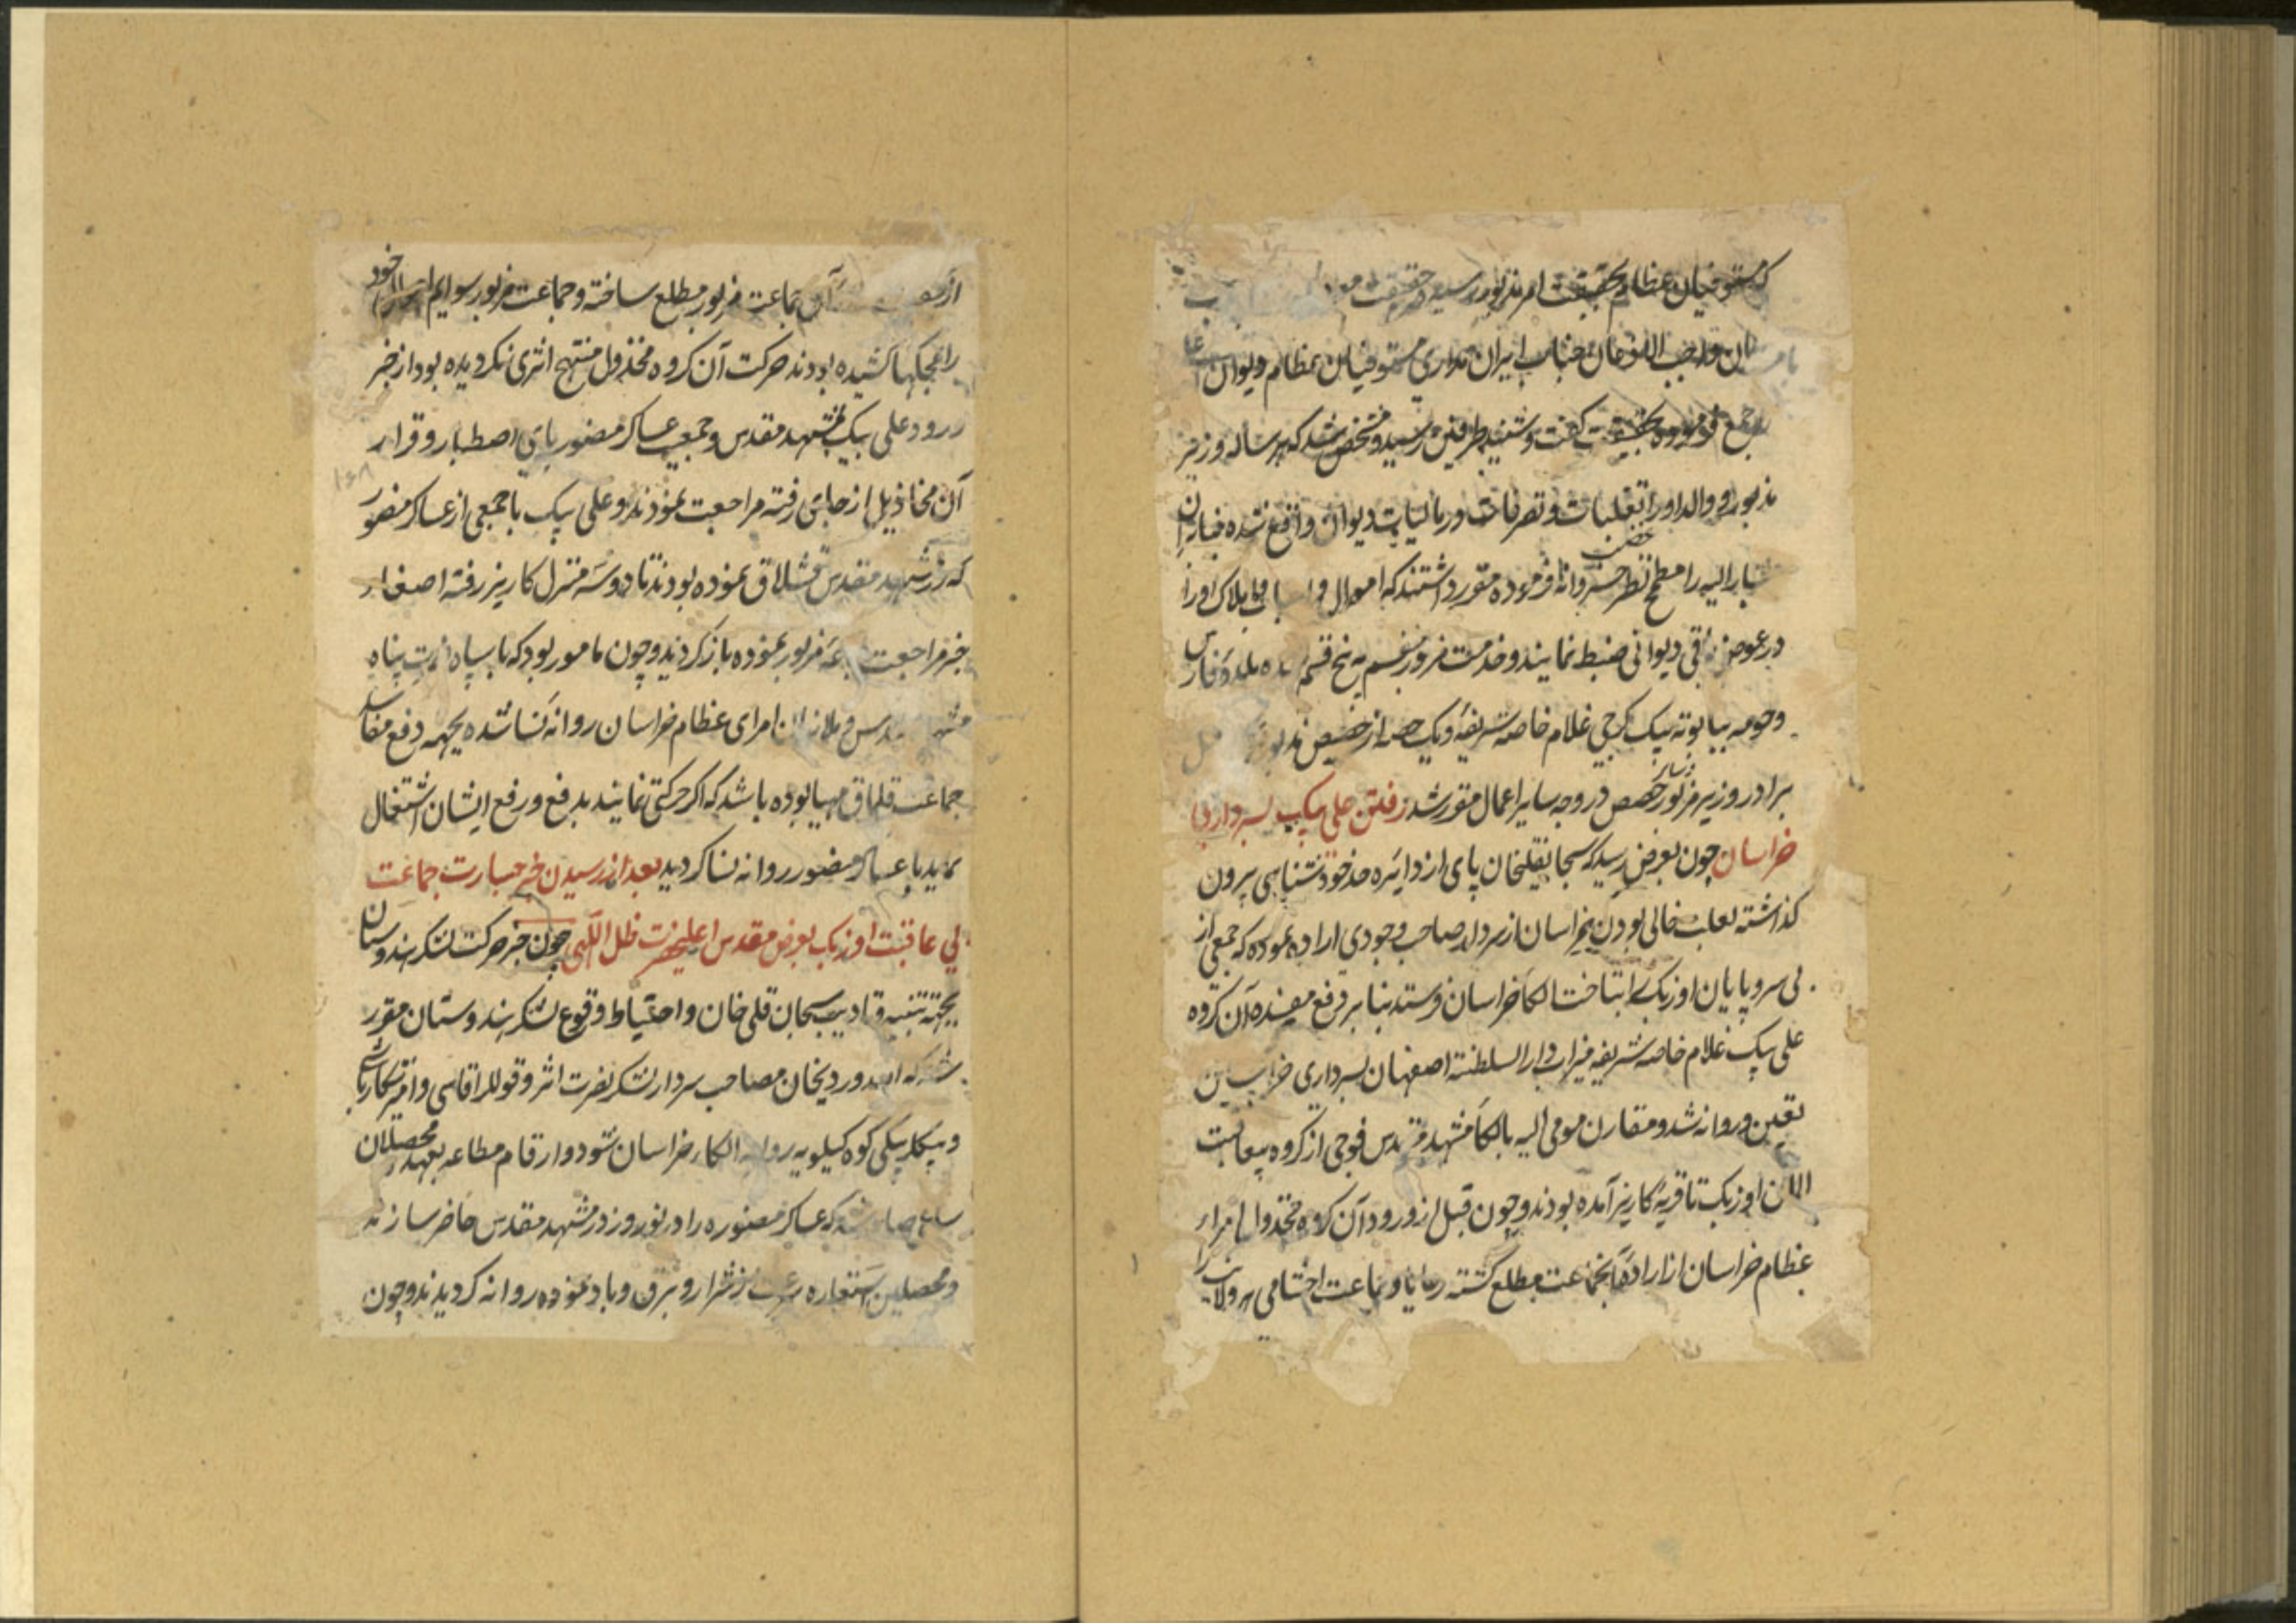 که مستوفیان عظام بحقیقت امر مذبور رسیده حقیقت
واجب الاذعان جناب ایران مداری مستوفیان عظام دیوان
جمع فرموده بحقیقت گفت و شنید طرفین رسیده مشخص شد که هر ساله وزیر
مذبور و والد او را تغلبات و تصرفات در مالیات دیوان واقع شده بنابران
مشارالیه را مطمح نظر غضب خسروانه فرموده مقرر داشتند که اموال و املاک او را
در عوض باقی دیوانی ضبط نمایند و خدمت مزبور منقسم به پنج قسم بلده فارس
و حومه ببابونه بیک کرجی غلام خاصه شریفه و یک حصه از حصص مذبور
برادر وزیر مزبور و سایر حصص در وجه سایر اعمال مقرر شد رفتن علی بیک بسرداری
خراسان چون بعرض رسید که سبحانقلیخان پای از دایره حد خودشناسی بیرون
گذاشته بعلت خالی بودن خراسان از سردار صاحب وجودی اراده نموده که جمعی از
بی سر و پایان اوزبک را بتاخت الکاء خراسان فرستد بنابر دفع مفسده آن گروه
علی بیک غلام خاصه شریفه میراب دار السلطنه اصفهان بسرداری خراسان
تعیین و روانه شد و مقارن مومی الیه بالکاء مشهد مقدس فوجی از گروه بیعاقبت
المان اوزبک تا قریه کاریز آمده بودند و چون قبل از ورود آن گروه مخذول امراء
عظام خراسان از اراده آنجماعت مطلع گشته رعایا و جماعت احشامی هر ولایت را
از آن جماعت مزبور مطلع ساخته و جماعت مزبور سوایم خود
را بجنکلها کشیده بودند حرکت آن گروه مخذول منتج اثری نگردیده بود از خبر
ورود علی بیک بمشهد مقدس و جمعیت عساکر منصور پای اصطبار و قرار
آن مخاذیل از جای رفته مراجعت نمودند و علی بیک با جمعی از عساکر منصور
که در مشهد مقدس قشلاق نموده بودند تا دو سه منزل کاریز رفته اصغاء
خبر مراجعت جماعت مزبور نموده بازگردیدند و چون مامور بود که با سپاه نصرت پناه
مشهد مقدس و ملازمان امرای عظام خراسان روانه نسا شده بجهة دفع مفاسد
جماعت قلماق مهیا بوده باشد که اگر حرکتی نمایند بدفع و رفع ایشان اشتغال
نماید با عساکر منصور روانه نسا گردید بعد از رسیدن خبر جسارت جماعت
بی عاقبت اوزبک بعرض مقدس اعلیحضرت ظل اللهی چون خبر حرکت لشکر هندوستان
بجهة تنبیه و تادیب سبحان قلی خان و احتیاط وقوع لشکر هندوستان مقرر
شد که الله وردیخان مصاحب سردار لشکر نصرت اثر و قوللر اقاسی و امیر شکارباشی
و بیکلربیکی کوه کیلویه روانه الکاء خراسان شود و ارقام مطاعه بعهده محصلان
ساعی صادر شد که عساکر منصوره را در نوروز در مشهد مقدس حاضر سازند
و محصلین استعاره سرعت از شرار و برق و باد نموده روانه گردیدند و چون